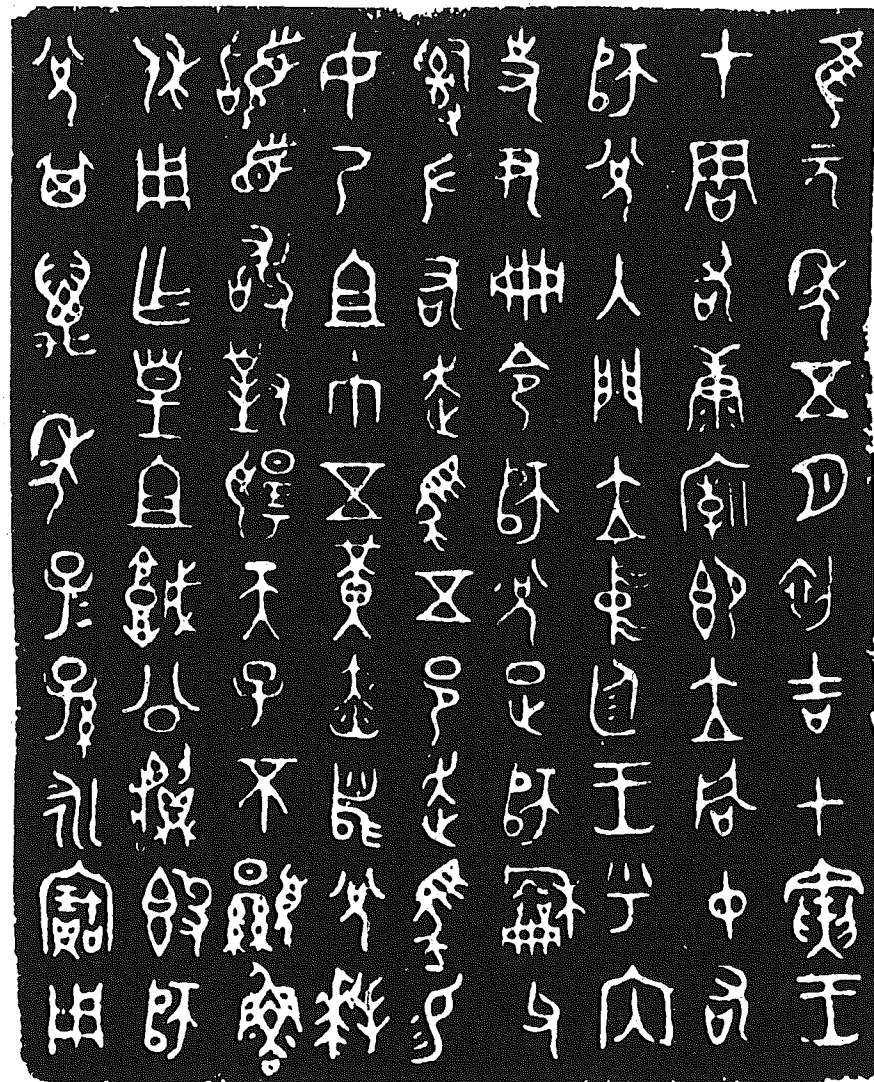 隹元年五月初吉甲寅王
才周各康廟即立同中右
師兌入門立中廷王乎內
史尹冊令師兌疋師龢父
𤔲左右走馬五邑走馬易
女乃且巾五黃赤舄兌拜
𩒨首敢對揚天子不顯魯
休用乍皇且城公𩰬簋師
兌其萬年子=孫=永寶用